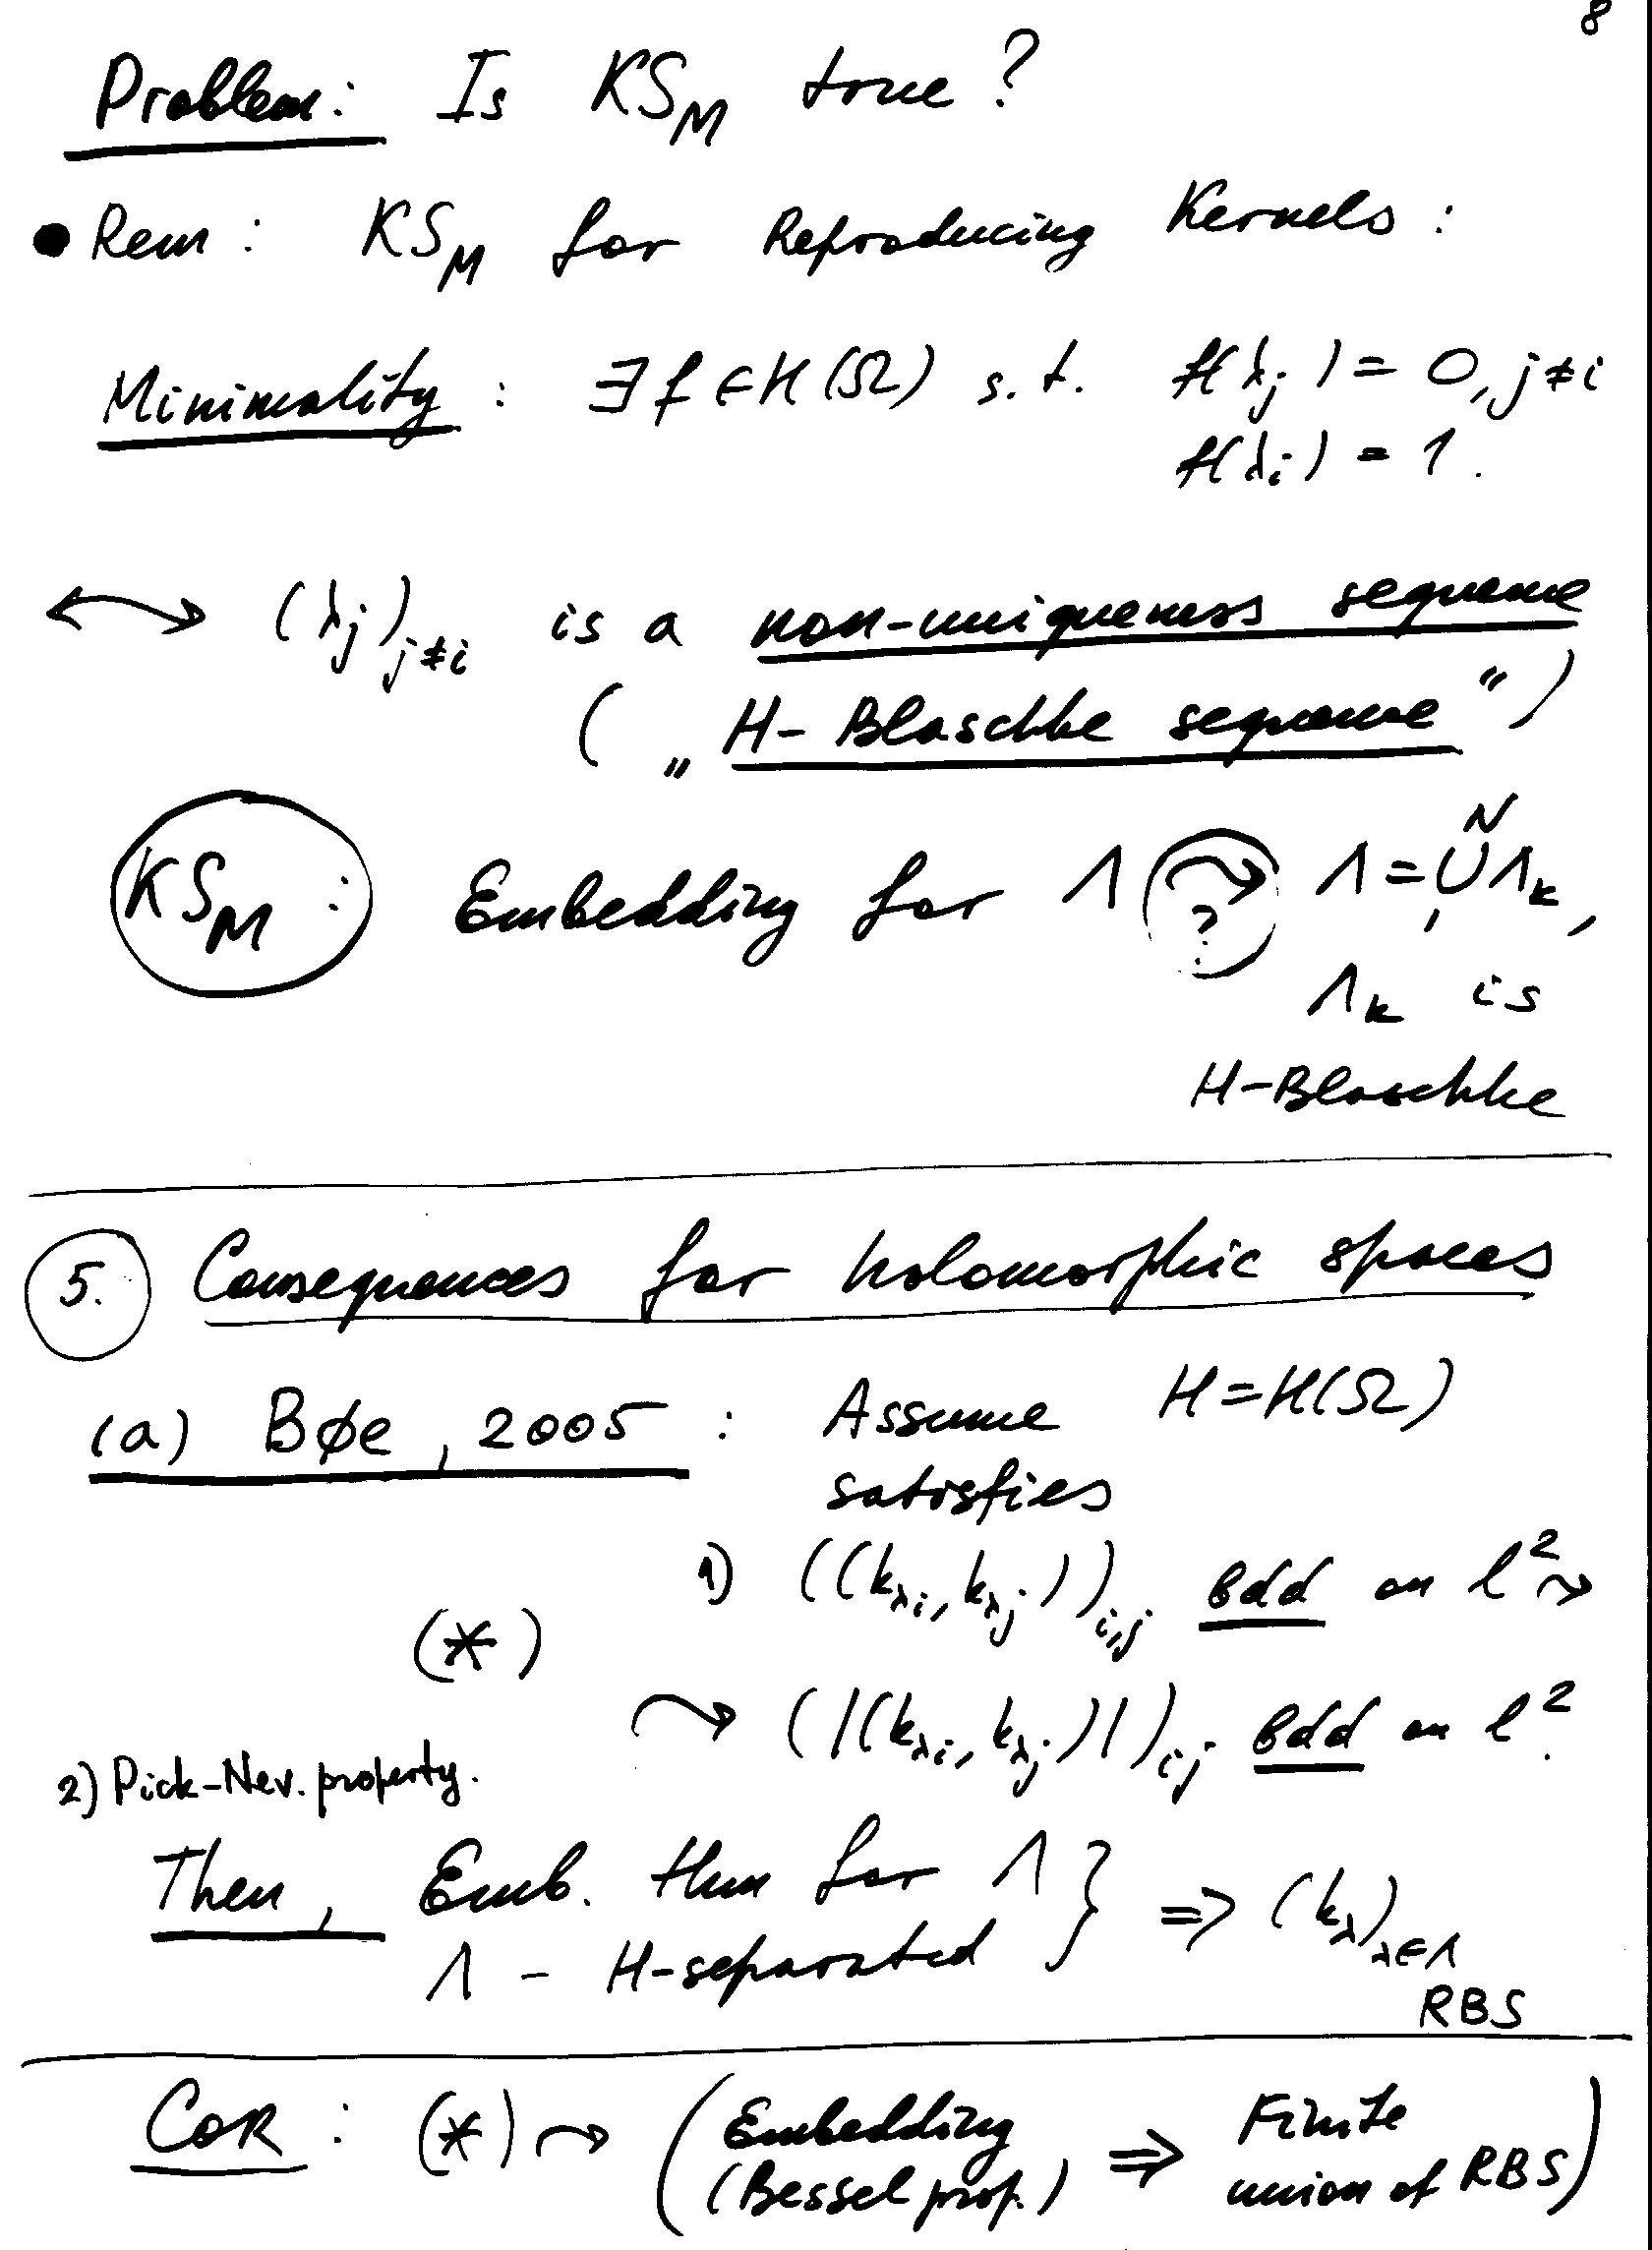 8
Problem: Is KS_M true?
• Rem: KS_M for Reproducing Kernels:
Minimality: ∃ f ∈ H(Ω) s.t. f(λ_j) = 0, j≠i
f(λ_i) = 1.
↔ (λ_j)_{j≠i} is a non-uniqueness sequence
(„H-Blaschke sequence")
KS_M: Embedding for Λ ↷ ? Λ = ⋃_1^N Λ_k,
Λ_k is
H-Blaschke
5. Consequences for holomorphic spaces
(a) Bøe, 2005: Assume H=H(Ω)
satisfies
1) ((k_{λi}, k_{λj}))_{i,j} bdd on l² ↷
(*)
↷ (|(k_{λi}, k_{λj})|)_{ij} bdd on l².
2) Pick-Nev. property.
Then, Emb. thm for Λ } ⇒ (k_λ)_{λ∈Λ}
Λ - H-separated RBS
COR: (*) ↷ (Embedding ⇒ Finite
(Bessel prop.) union of RBS)